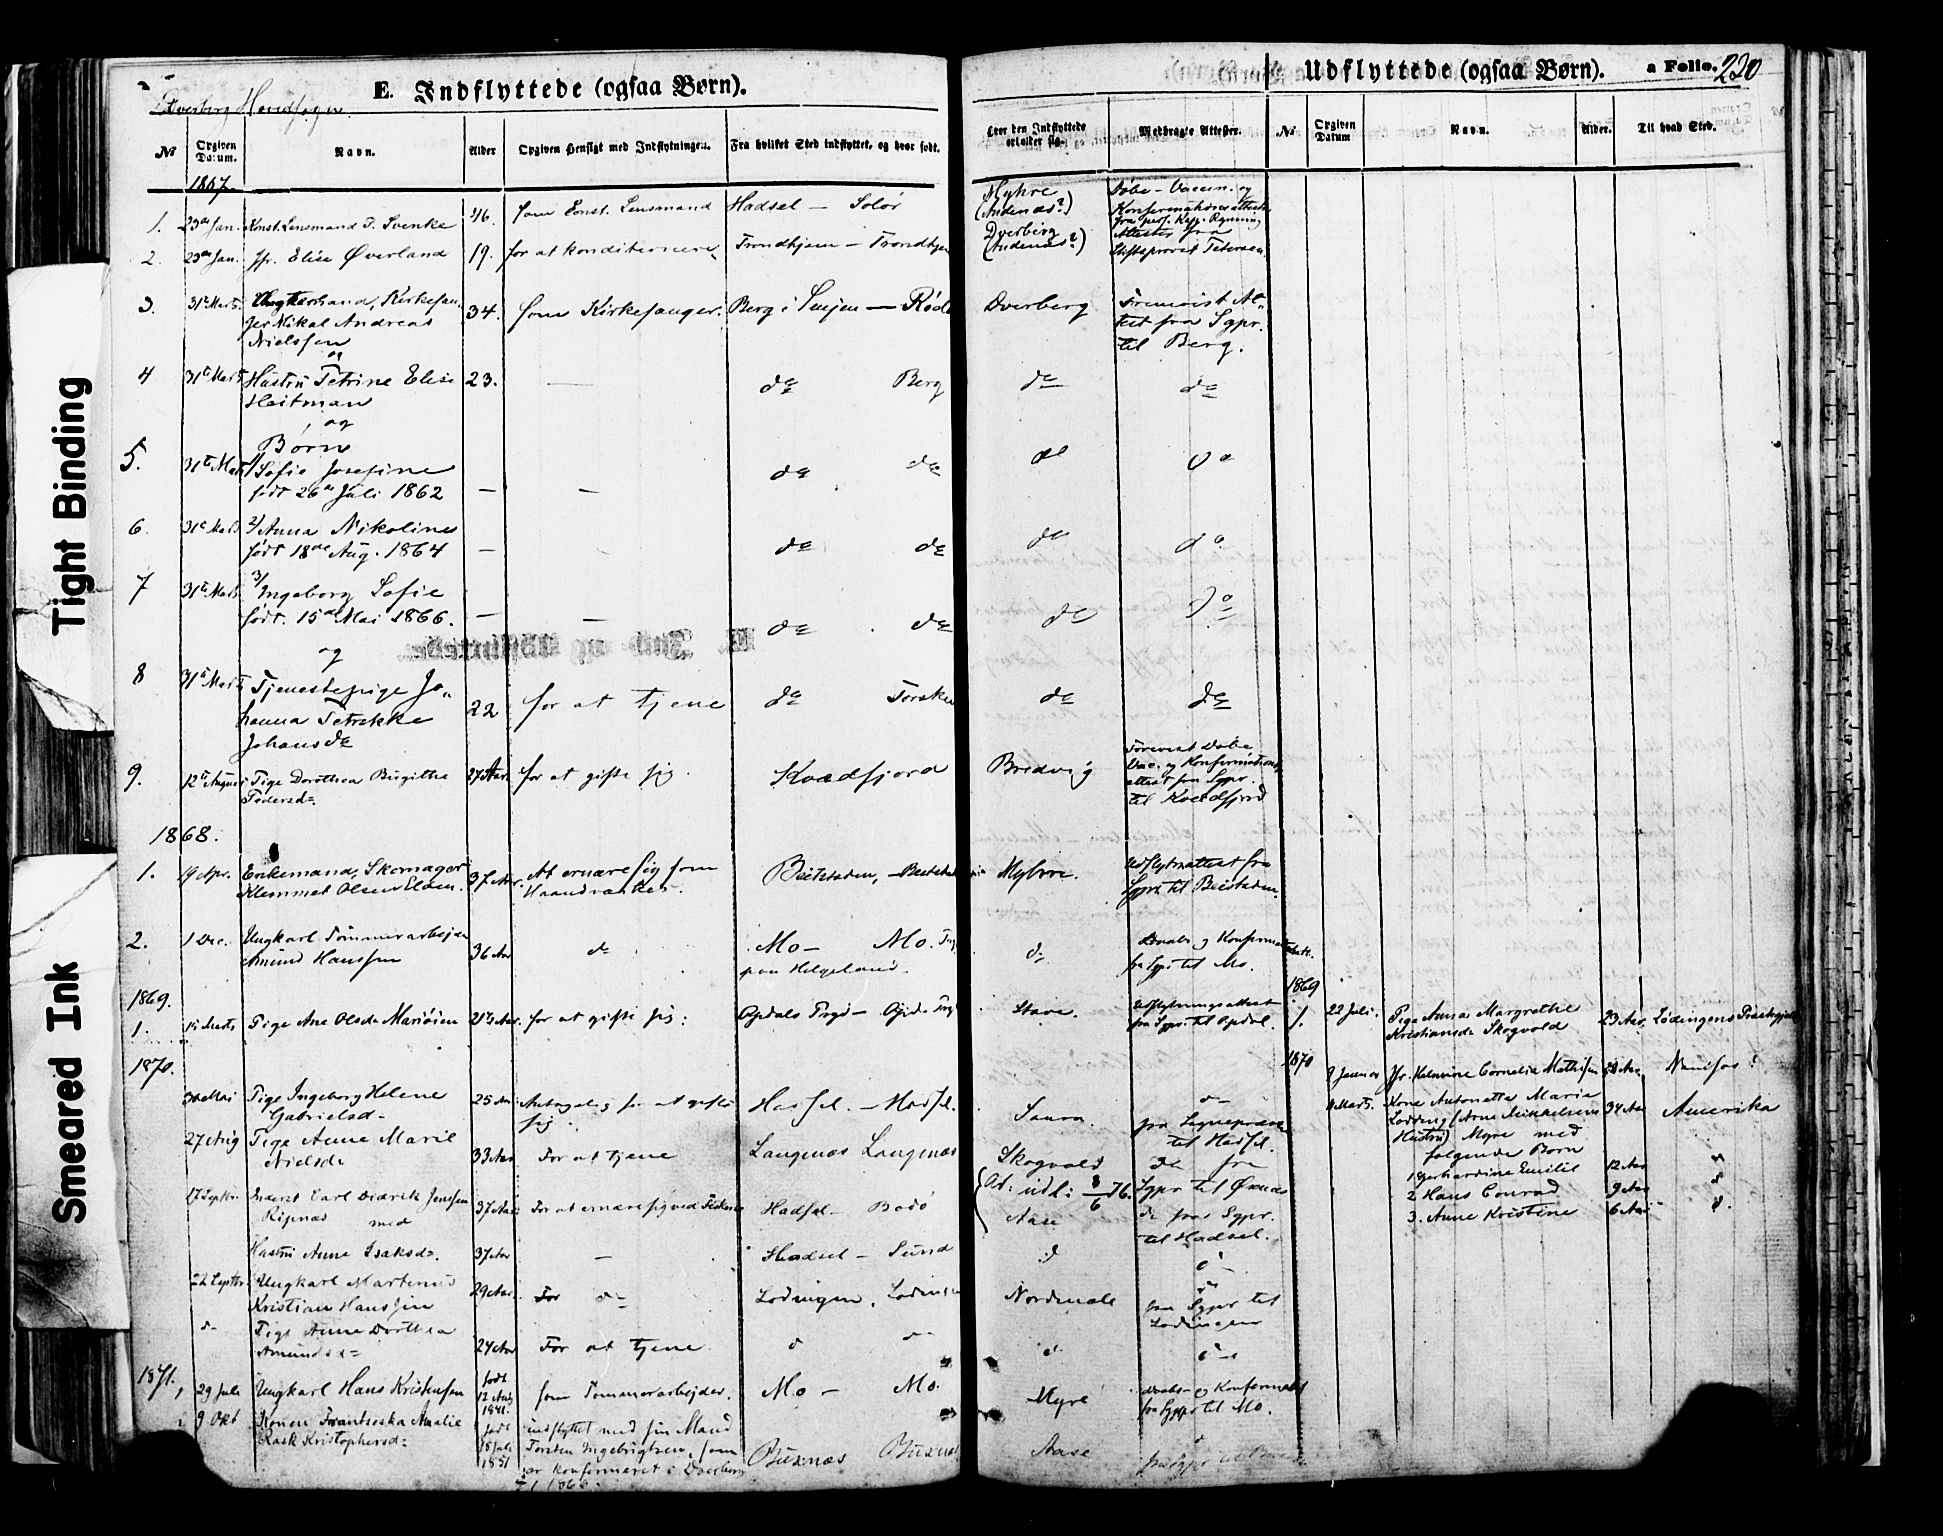 Tight Binding
Smeared Ink
Dverberg Hovedsogn
E. Indflyttede (ogsaa Børn).
№ Opgiven Datum. Navn. Alder Opgiven Hensigt med Indflytningen. Fra hvilket Sted indflyttet, og hvor født.
1867.
1. 23de Jan. Const. Lensmand P. Svenke 46. som Const. Lensmand Hadsel – Solør
2. 23de Jan. Jfr. Elise Øverland 19. for at konditionere Trondhjem –
3. 31te Marts Kirkesan-
ger Nikal Andreas
Nielssen
34. som Kirkesanger. Berg i Senjen –
og
4 31te Marts Hustru Petrine Elise
Heitman
23. — do Berg
og
Børn
5. 31te Marts 1/ Sofie Josefine
født 26de Juli 1862 — — do do
6. 31te Marts 2/ Anna Nikoline
født 18de Aug. 1864 — do do
7 31te Marts 3/ Ingeborg Sofie
født 15de Mai 1866. — — do do
og
8 31te Marts Tjenestepige Jo-
hanna Petrikke
Johansdr
22 for at tjene do Torsken
9. 12te August Pige Dorothea Birgithe
Pedersdr.
27 Aar. for at gifte sig. Kvædfjord
1868.
1. 19 Apr. Enkemand, Skomager
Klemmet Olsen
37 Aar. At ernære sig som
Haandværker.
Beitstaden, –
2. 1 Dec. Ungkarl Tømmerarbejder
Amund Hanssen
36 Aar do Mo – Mo.
paa Helgeland.
1869.
1. Marts Pige Ane Olsdr for at gifte sig. Opdals Prgd –
1870.
30 Mai Pige Ingeborg Helene
Gabrielsdr
25 Aar for at gifte
sig.
Hadsel. – Hadsel.
27 Aug Pige Anne Marie
Nielsdr
33 Aar For at tjene Langenæs Langenæs
17 Septbr. Carl Didrik Jenssen
Ripnæs med
37 Aar For at ernære sig ved Fiskeri Hadsel – Bodø
Hustru Anne Isaksdr. 37 Aar — Hadsel – Sund
22 Septbr. Ungkarl Martinus
Kristian Hanssen
29 Aar. For do Lødingen, Lødingen
do Pige Anne Dorthea
Amundsdr
24 Aar For at tjene. do do
1871.
29 Juli Ungkarl Hans Kristensen født
12 Aug
1841. som Tømmerarbejder. Mo – Mo.
9 Okt Konen Frantseska Amalie
Rask Kristophersdr
født
18 Juli
1851
indflyttet med sin Mand
Torsten Ingebrigtsen, som
er konfirmeret i Dverberg
1866.
Buxnæs Buxnæs
Hvor den Indflyttede opholder sig. Medbragte Attester.
Myhre
(Andenæs?)
Døbe- Vaccin. og
Konfirmationsattest
fra pers. Kap. Rynning
Dverberg
(Andenæs?)
Attester fra
Stiftsprovst Petersen
Dverberg Fremvist At-
test fra Sgpr.
til Berg.
do do
do do
do do
do do
do do
Bredvig Forevist Døbe
Vac. og Konfirmations-
attest fra Sgpr.
til Kvædfjord
Myhre. Udflytn.attest fra
Sgpr. til Beitstaden.
do og Konfirm.
fra Sgpr. til Mo.
Stave. Udflytningsattest
fra Sgpr. til Opdal.
Saura. do
fra Sognepræsten
til Hadsel.
Skogvold do fra
Sgpr. til Øxnæs
Aase do fra Sgpr.
til Hadsel.
do do
Nordmele do
fra Sgpr. til
Lødingen
do do
Myre Daabs- og Konfirmatt.
fra Sgpr. til Mo.
Aase do
fra Sgpr. til
Udflyttede (ogsaa Børn). a Folio. 220
№ Opgiven Datum Navn. Alder. Til hvad Sted.
1869
1. 22 Juli. Pige Anna Margrethe
Kristiansdr Skogvold
23 Aar. Lødingens Præstegjeld
1870
Januar Jfr. Cornelia Mathisen Aar.
Marts. Kone Antonette Maria
Lødding (Arne Mikkelsens
Hustru) Myre med
følgende Børn
34 Aar Amerika
1 Gerhardine Emilie 12 Aar do
2 Hans Conrad 9 Aar do
3. Anne Kristine 6 Aar do